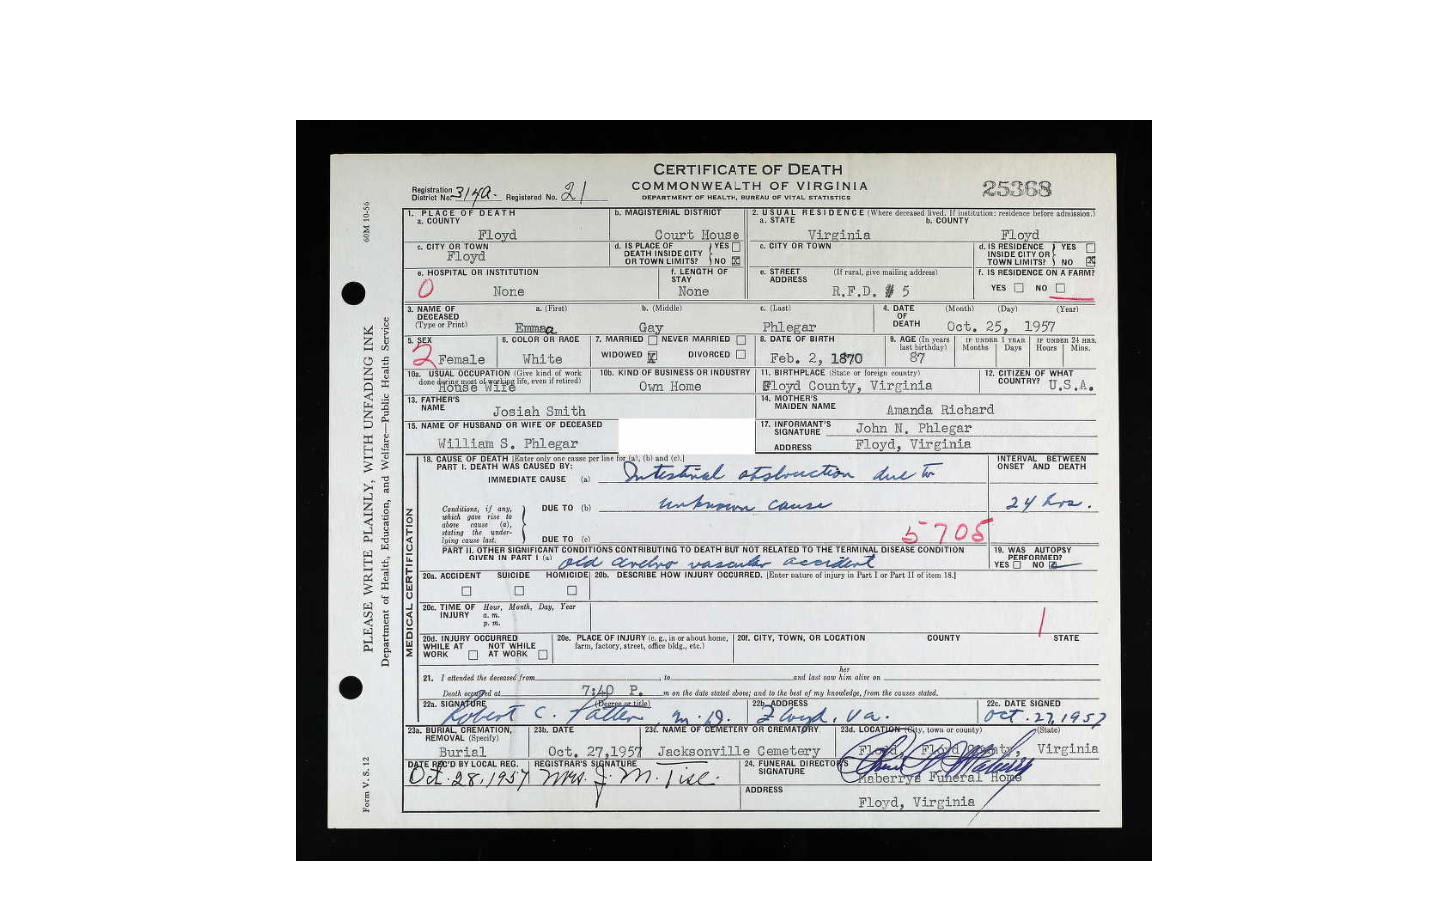 CERTIFICATE OF DEATH
COMMONWEALTH OF VIRGINIA
DEPARTMENT OF HEALTH, BUREAU OF VITAL STATISTICS
25368
Registration District No. 314A. Registered No. 21
60M 10-56
PLEASE WRITE PLAINLY, WITH UNFADING INK
Department of Health, Education, and Welfare—Public Health Service
Form V. S. 12
1. PLACE OF DEATH
a. COUNTY
Floyd
b. MAGISTERIAL DISTRICT
Court House
2. USUAL RESIDENCE (Where deceased lived. If institution: residence before admission.)
a. STATE
Virginia
b. COUNTY
Floyd
c. CITY OR TOWN
Floyd
d. IS PLACE OF DEATH INSIDE CITY OR TOWN LIMITS? YES NO X
c. CITY OR TOWN
d. IS RESIDENCE INSIDE CITY OR TOWN LIMITS? YES NO X
e. HOSPITAL OR INSTITUTION
0 None
f. LENGTH OF STAY
None
e. STREET ADDRESS (If rural, give mailing address)
R.F.D. # 5
f. IS RESIDENCE ON A FARM?
YES NO
3. NAME OF DECEASED (Type or Print)
a. (First) b. (Middle) c. (Last)
Emma Gay Phlegar
4. DATE OF DEATH (Month) (Day) (Year)
Oct. 25, 1957
5. SEX
2 Female
6. COLOR OR RACE
White
7. MARRIED NEVER MARRIED
WIDOWED X DIVORCED
8. DATE OF BIRTH
Feb. 2, 1870
9. AGE (In years last birthday)
87
IF UNDER 1 YEAR Months Days
IF UNDER 24 HRS. Hours Mins.
10a. USUAL OCCUPATION (Give kind of work done during most of working life, even if retired)
House Wife
10b. KIND OF BUSINESS OR INDUSTRY
Own Home
11. BIRTHPLACE (State or foreign country)
Floyd County, Virginia
12. CITIZEN OF WHAT COUNTRY? U.S.A.
13. FATHER'S NAME
Josiah Smith
14. MOTHER'S MAIDEN NAME
Amanda Richard
15. NAME OF HUSBAND OR WIFE OF DECEASED
William S. Phlegar
17. INFORMANT'S SIGNATURE John N. Phlegar
ADDRESS Floyd, Virginia
MEDICAL CERTIFICATION
18. CAUSE OF DEATH [Enter only one cause per line for (a), (b) and (c).]
PART I. DEATH WAS CAUSED BY:
IMMEDIATE CAUSE (a) Intestinal obstruction due to
INTERVAL BETWEEN ONSET AND DEATH
Conditions, if any, which gave rise to above cause (a), stating the underlying cause last.
DUE TO (b) unknown cause 24 hrs.
DUE TO (c)
5705
PART II. OTHER SIGNIFICANT CONDITIONS CONTRIBUTING TO DEATH BUT NOT RELATED TO THE TERMINAL DISEASE CONDITION GIVEN IN PART I (a)
old vascular accident
19. WAS AUTOPSY PERFORMED?
YES NO
20a. ACCIDENT SUICIDE HOMICIDE
20b. DESCRIBE HOW INJURY OCCURRED. [Enter nature of injury in Part I or Part II of item 18.]
20c. TIME OF INJURY Hour, Month, Day, Year
a. m.
p. m.
20d. INJURY OCCURRED
WHILE AT WORK NOT WHILE AT WORK
20e. PLACE OF INJURY (e. g., in or about home, farm, factory, street, office bldg., etc.)
20f. CITY, TOWN, OR LOCATION COUNTY STATE
1
21. I attended the deceased from , to and last saw her him alive on
Death occurred at 7:40 P. m on the date stated above; and to the best of my knowledge, from the causes stated.
22a. SIGNATURE (Degree or title)
Robert C. M.D.
22b. ADDRESS
Floyd, Va.
22c. DATE SIGNED
Oct. 27, 1957
23a. BURIAL, CREMATION, REMOVAL (Specify)
Burial
23b. DATE
Oct. 27,1957
23c. NAME OF CEMETERY OR CREMATORY
Jacksonville Cemetery
23d. LOCATION (City, town or county) (State)
Floyd, Floyd County, Virginia
DATE REC'D BY LOCAL REG.
Oct. 28, 1957
REGISTRAR'S SIGNATURE
Mrs. J. M. Tise.
24. FUNERAL DIRECTOR'S SIGNATURE
Maberry's Funeral Home
ADDRESS
Floyd, Virginia